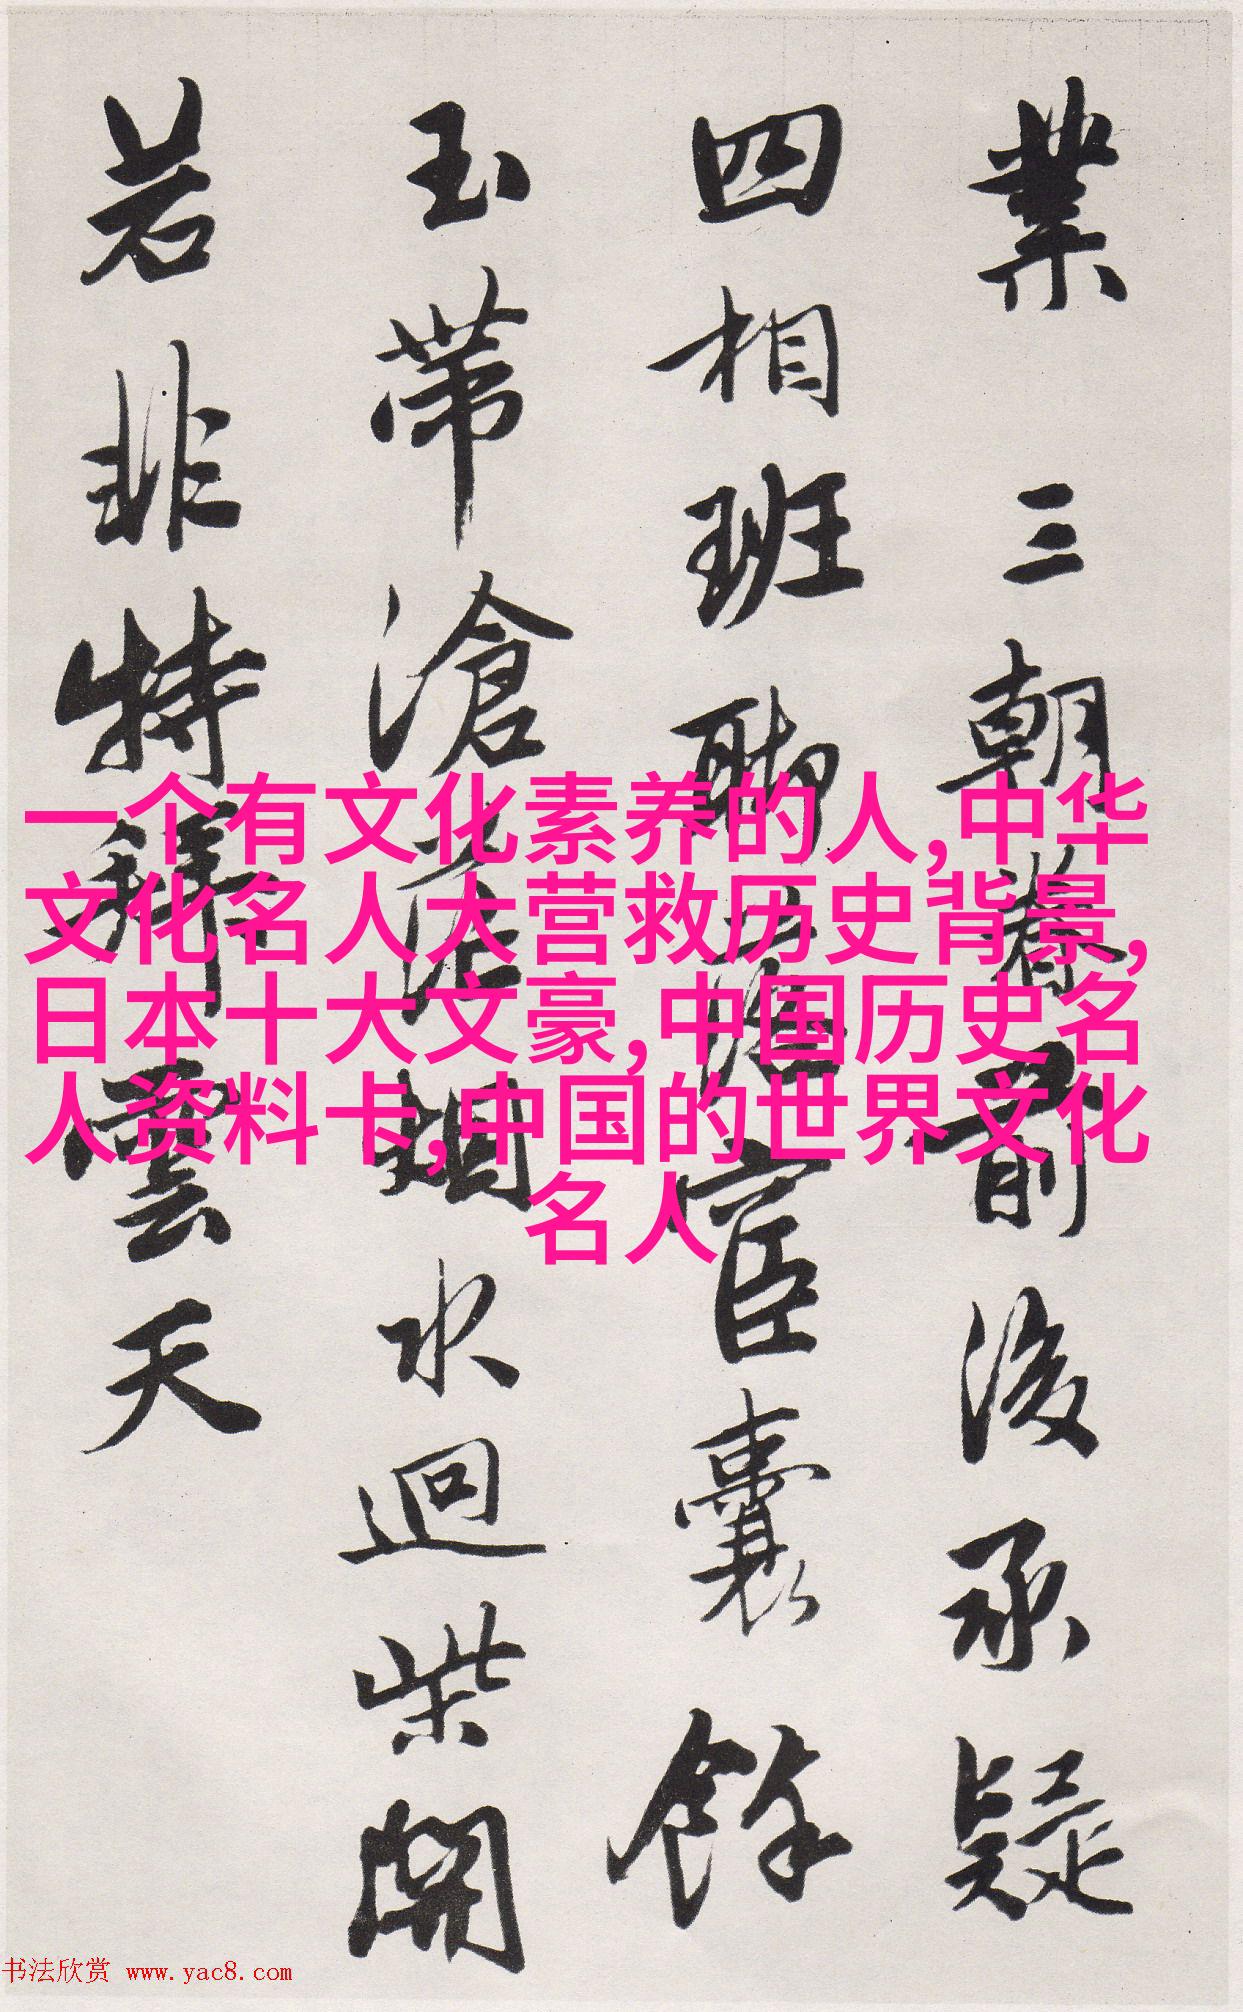 業三朝前後承疑
四相班聯宦囊餘
玉帶滄茫烟水迥柴開
若非特拜雲天
一个有文化素养的人,中华
文化名人大营救历史背景,
日本十大文豪,中国历史名
人资料卡,中国的世界文化
名人
书法欣赏 www.yac8.com